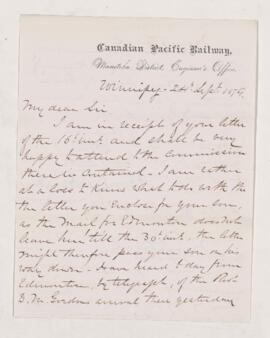 Canadian Pacific Railway,
Manitoba District Engineer's Office
Winnipeg - 24th Sept 1879
My dear Sir
I am in receipt of your letter
of the 15th inst. and shall be very
happy to attend to the commission
therein contained. I am rather
at a loss to know what to do with the
the letter you enclose for your son,
as the Mail for Edmonton does not
leave here till the 30th inst. the letter
might therefore pass your son on his
way down - I have heard to day from
Edmonton, by telegraph, of the Revd
D. M. Gordon's arrival there yesterday